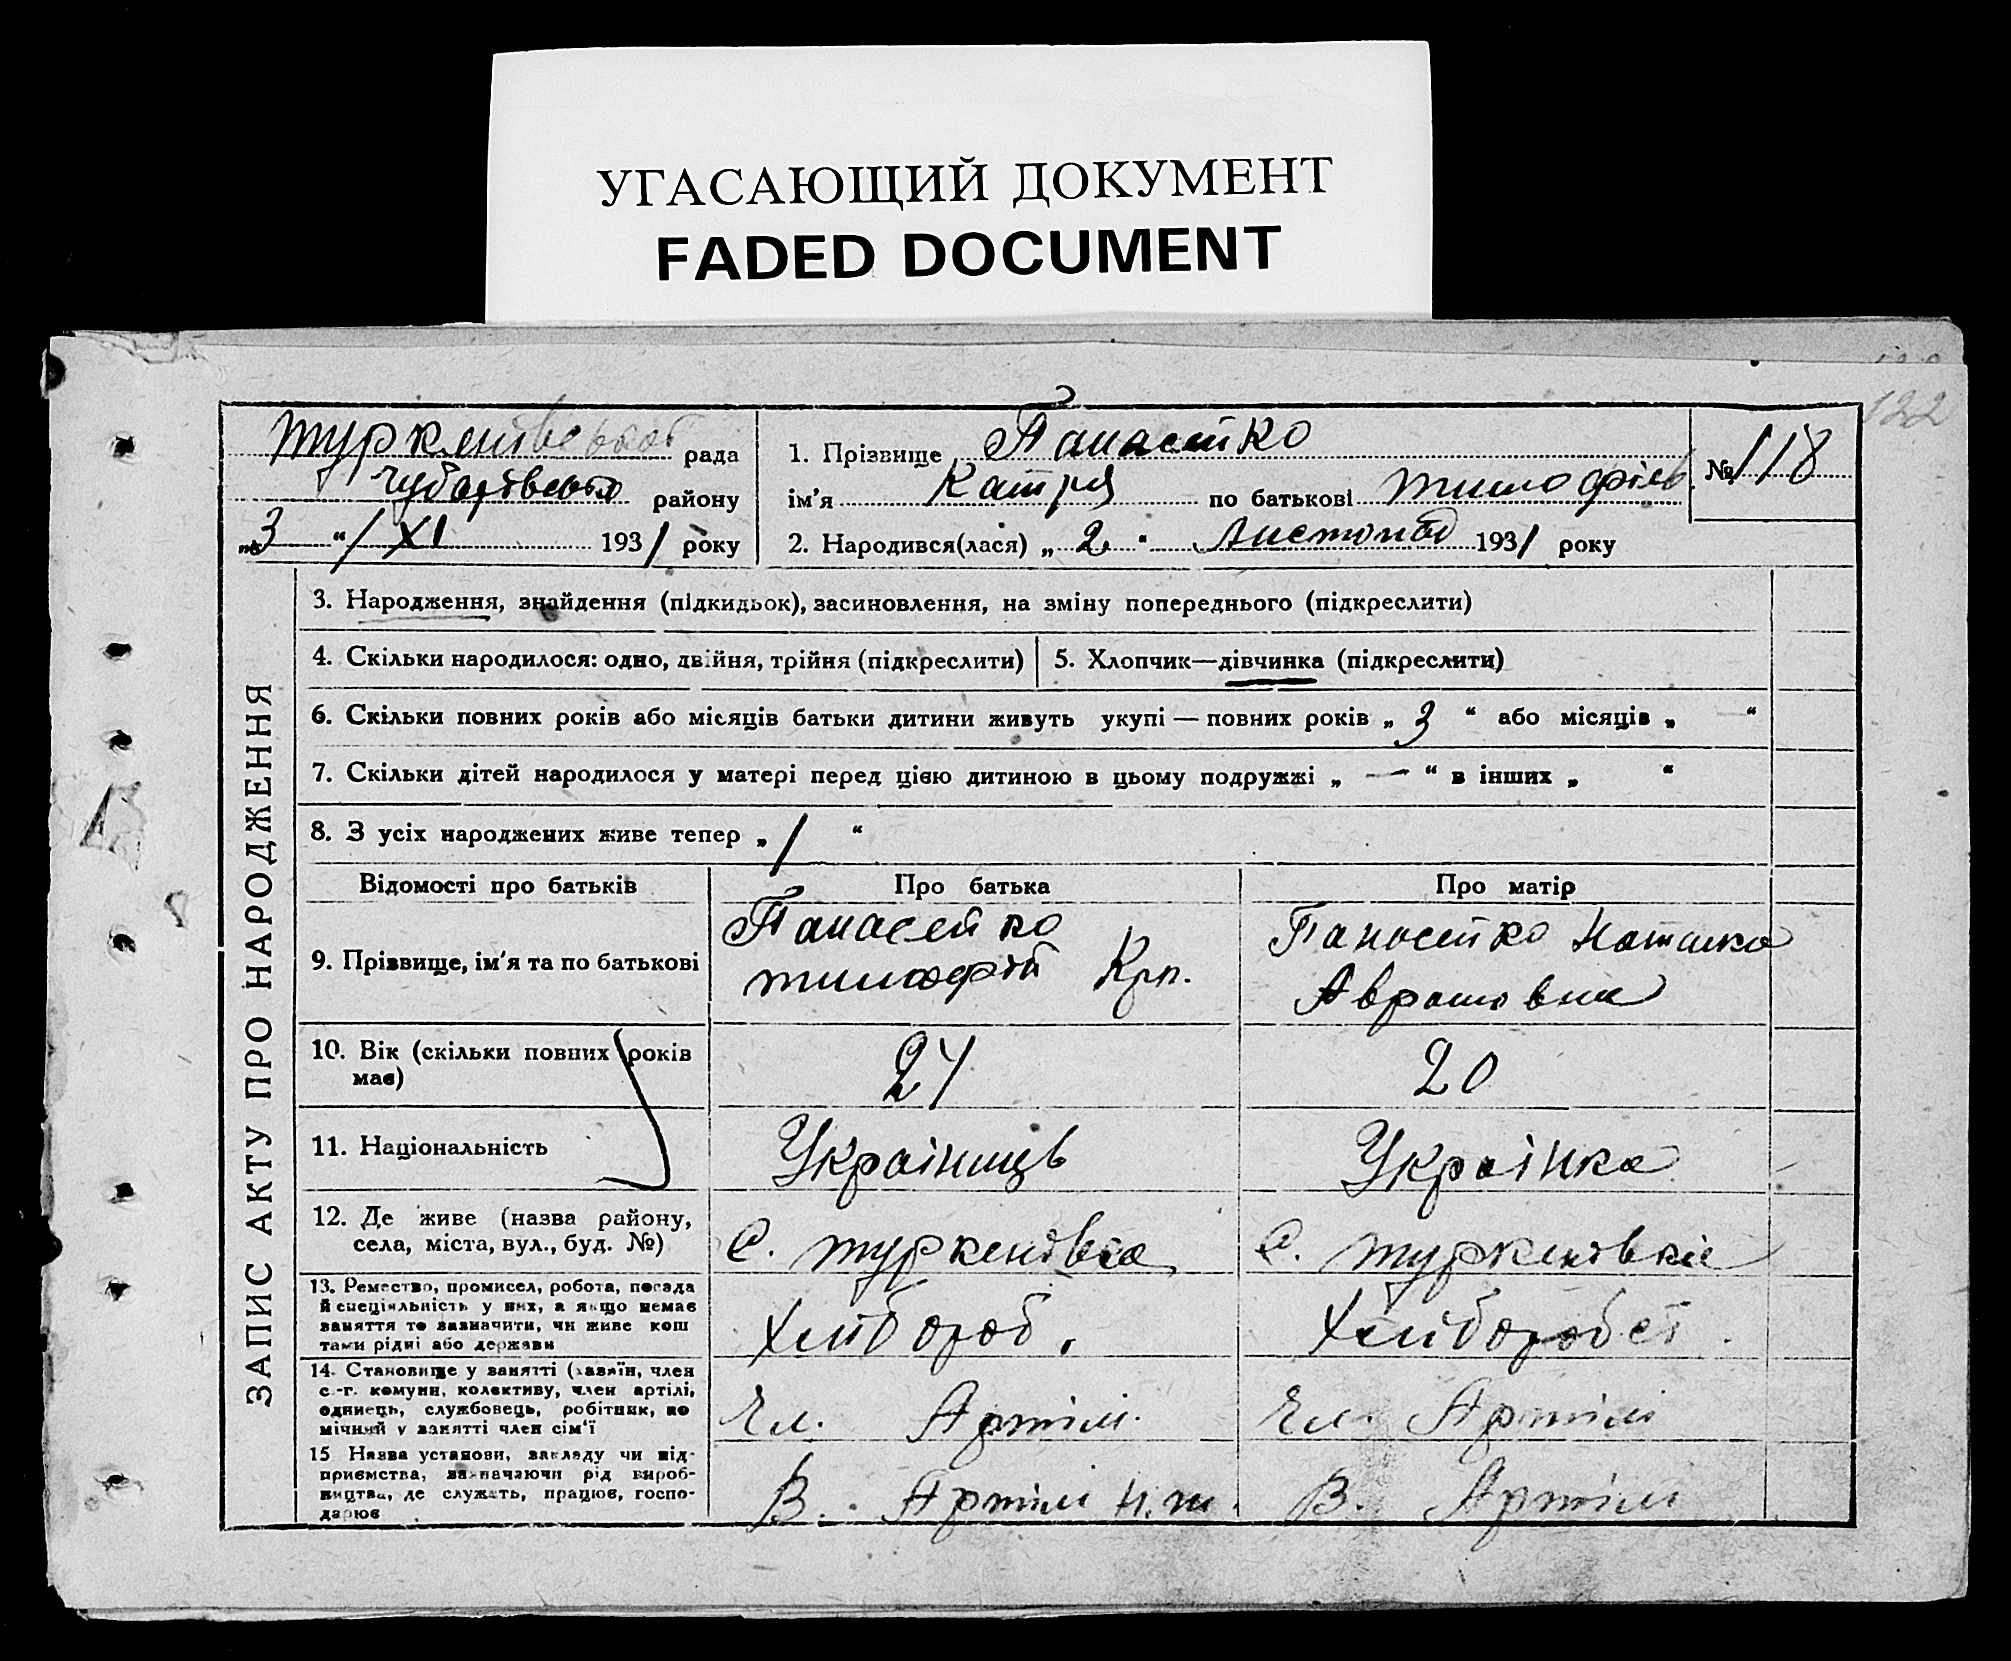 УГАСАЮЩИЙ ДОКУМЕНТ
FADED DOCUMENT
122
Туркенівської рада
Чубарівського району
„3“ / XI 1931 року
1. Прізвище Панасенко
ім'я Катря по батькові Тимофіев.
№ 118
2. Народився(лася) „2“ Листопад 1931 року
ЗАПИС АКТУ ПРО НАРОДЖЕННЯ
3. Народження, знайдення (підкидьок), засиновлення, на зміну попереднього (підкреслити)
4. Скільки народилося: одно, двійня, трійня (підкреслити)
5. Хлопчик—дівчинка (підкреслити)
6. Скільки повних років або місяців батьки дитини живуть укупі — повних років „3“ або місяців „—“
7. Скільки дітей народилося у матері перед цією дитиною в цьому подружжі „—“ в інших „ “
8. З усіх народжених живе тепер „1“
Відомості про батьків
Про батька
Про матір
9. Прізвище, ім'я та по батькові
Панасенко
Тимофій Крп.
Панасенко Наталка
Аврамовна
10. Вік (скільки повних років
має)
24
20
11. Національність
Українець
Українка
12. Де живе (назва району,
села, міста, вул., буд. №)
С. Туркенівка
С. Туркенівка
13. Ремество, промисел, робота, посада
й спеціяльність у них, а якщо немає
заняття то зазначити, чи живе кош
тами рідні або держави
Хлібороб.
14. Становище у занятті (хазяїн, член
с.-г. комуни, колективу, член артілі,
одинець, службовець, робітник, по
мічний у занятті член сім'ї
Чл. Артілі.
Чл. Артілі
15 Назва установи, закладу чи під-
приємства, зазначаючи рід вироб-
ництва, де служить, працює, госпо-
дарює
В. Артілі
В. Артілі